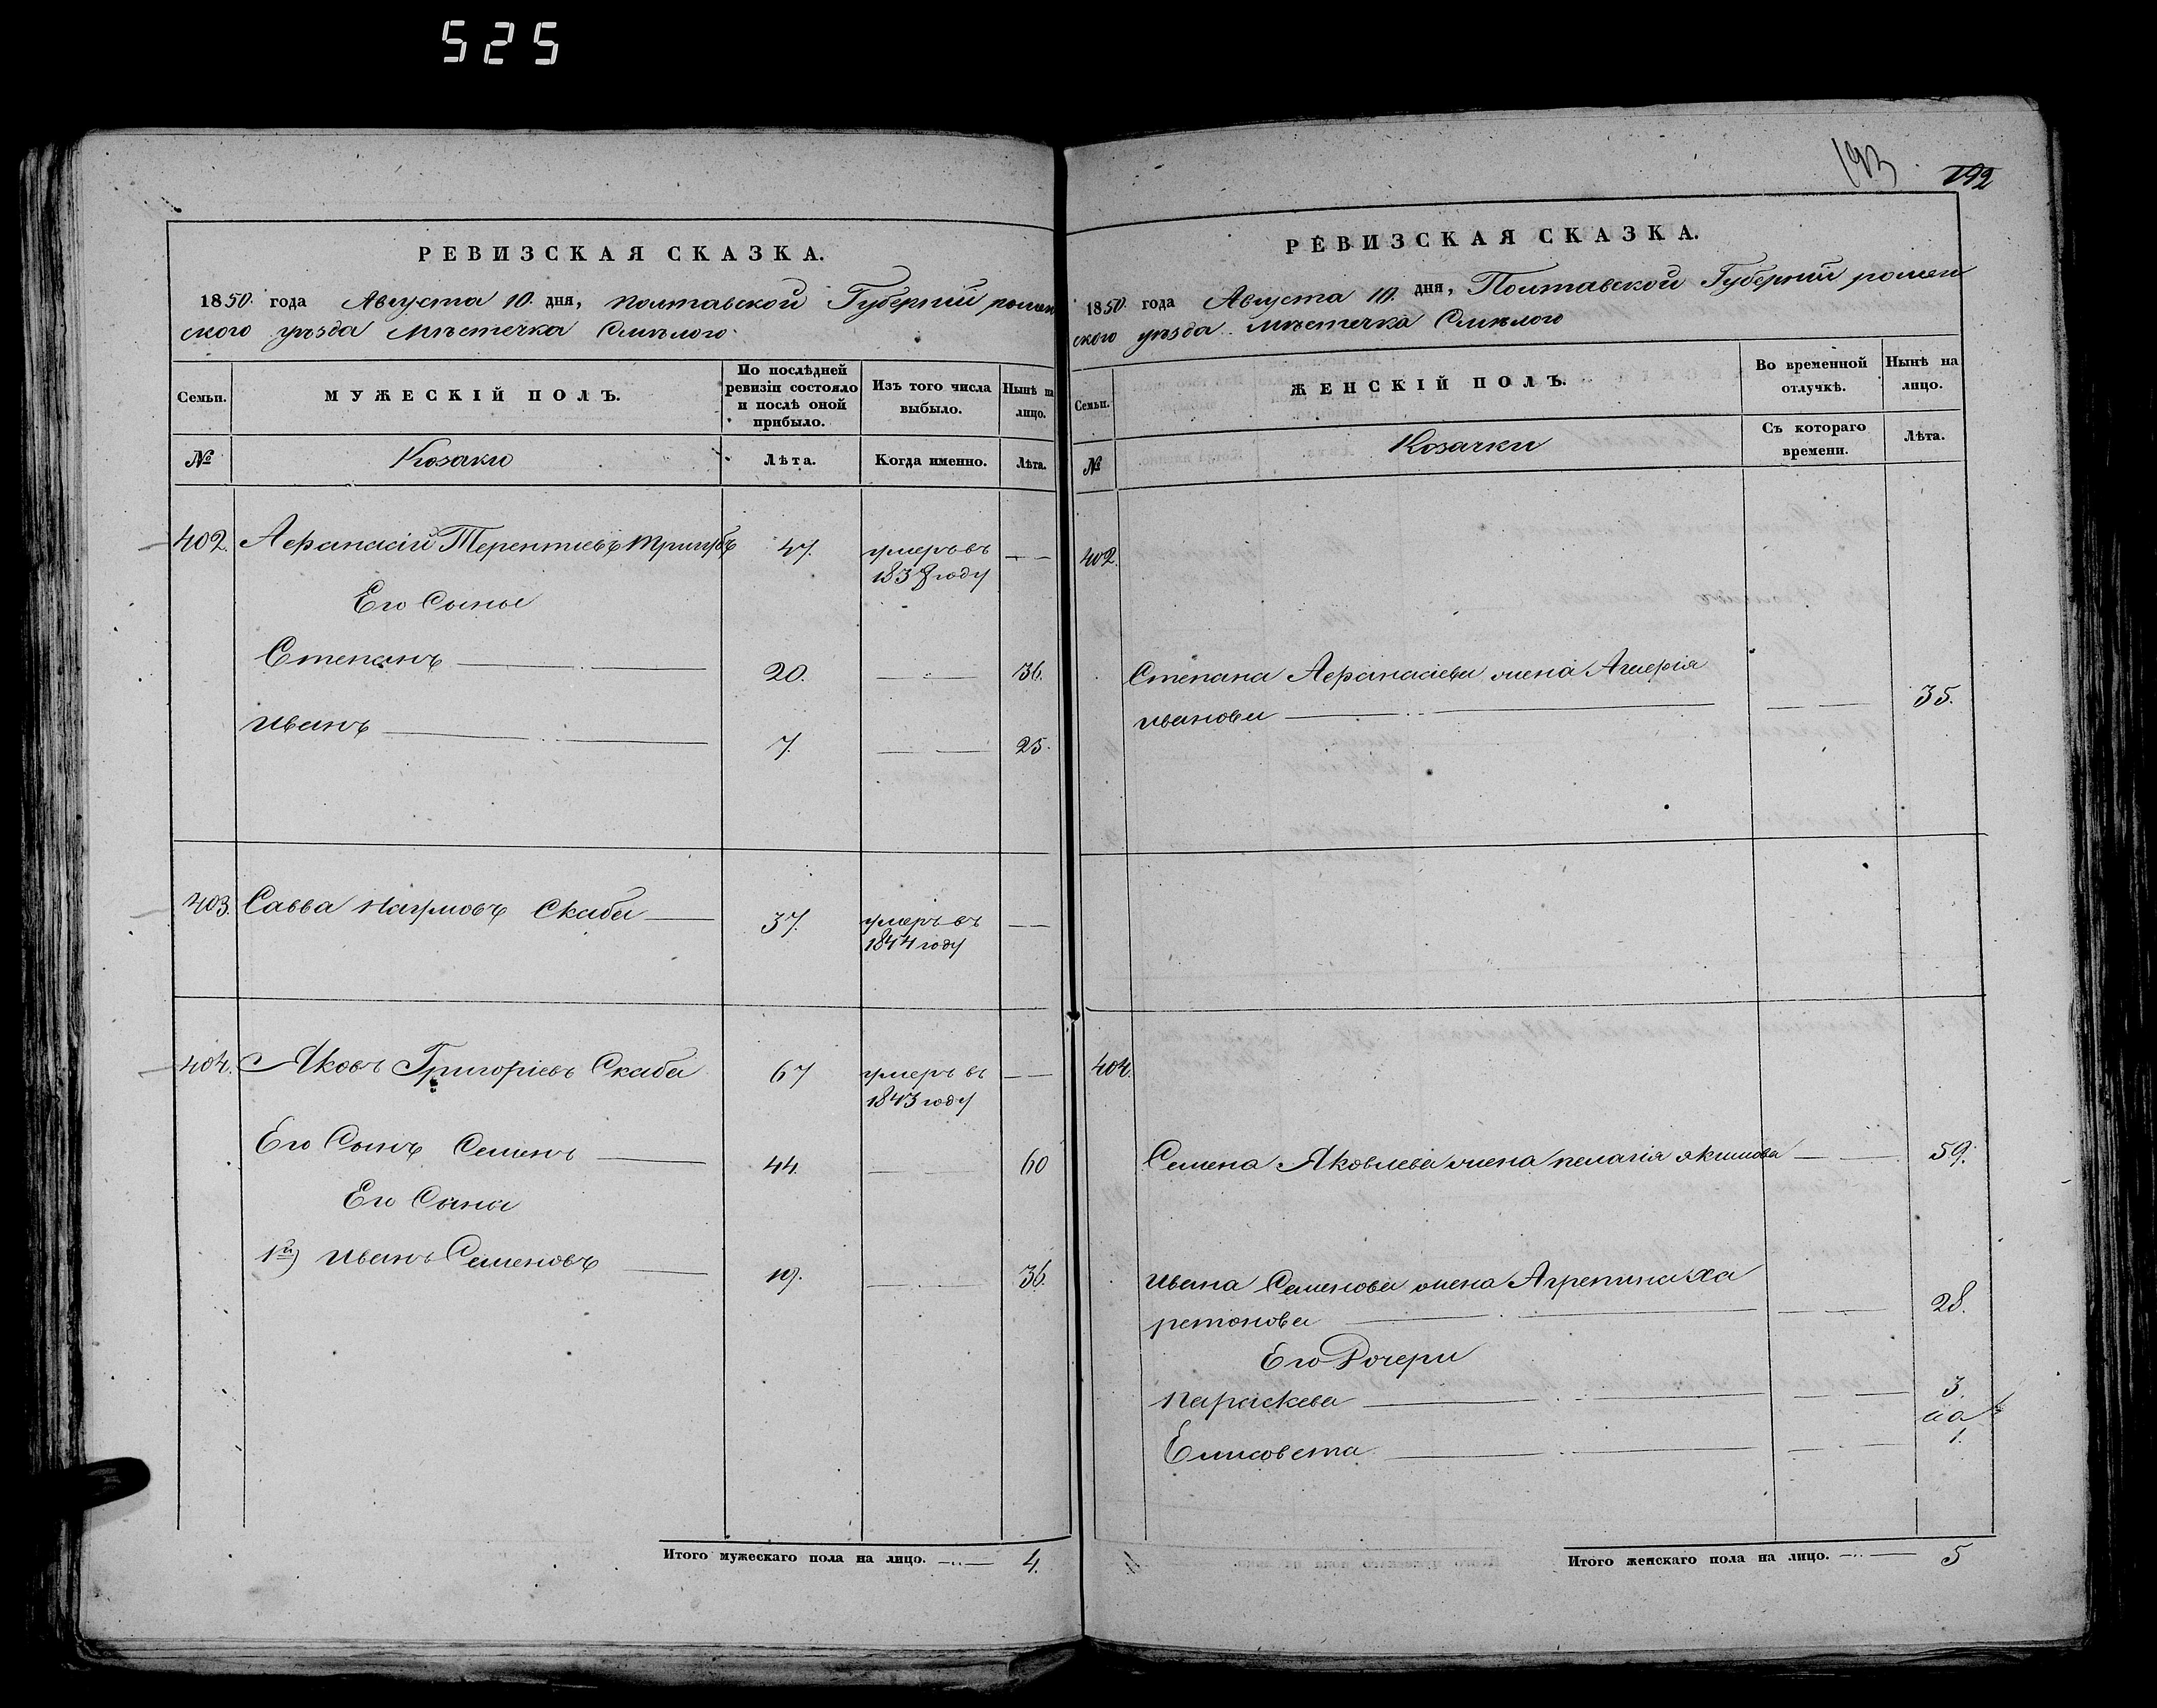 525
193
192
РЕВИЗСКАЯ СКАЗКА.
1850. года Августа 10. дня, полтавской Губерніи ромен
ского уѣзда мѣстечка Смѣлого
Семьи.
МУЖЕСКІЙ ПОЛЪ.
По послѣдней ревизіи состояло и послѣ оной прибыло.
Изъ того числа выбыло.
Нынѣ на лицо.
№
Козаки
Лѣта.
Когда именно.
Лѣта.
402. Афанасій Терентіевъ Тригубъ 47. умеръ въ 1838 году
Его Сыны
Степанъ 20. 36.
Иванъ 7. 25.
403. Савва Наумовъ Скаба 37. умеръ въ 1844 году
404. Яковъ Григоріевъ Скаба 67 умеръ въ 1843 году
Его Сынъ Семенъ 44. 60
Его Сыны
1й) Иванъ Семеновъ 19. 36.
Итого мужескаго пола на лицо. 4.
РЕВИЗСКАЯ СКАЗКА.
1850. года Августа 10. дня, Полтавской Губерніи ромен
ского уѣзда мѣстечка Смѣлого
Семьи.
ЖЕНСКІЙ ПОЛЪ.
Во временной отлучкѣ.
Нынѣ на лицо.
№
Козачки
Съ котораго времени.
Лѣта.
402.
Степана Афанасіева жена Агафія
иванова 35.
404.
Семена Яковлева жена пелагія якимова 59.
Ивана Семенова жена Агрепина Ха
ритонова 28.
Его Дочери
Параскева 3.
Елисовета 1.
Итого женскаго пола на лицо. 5